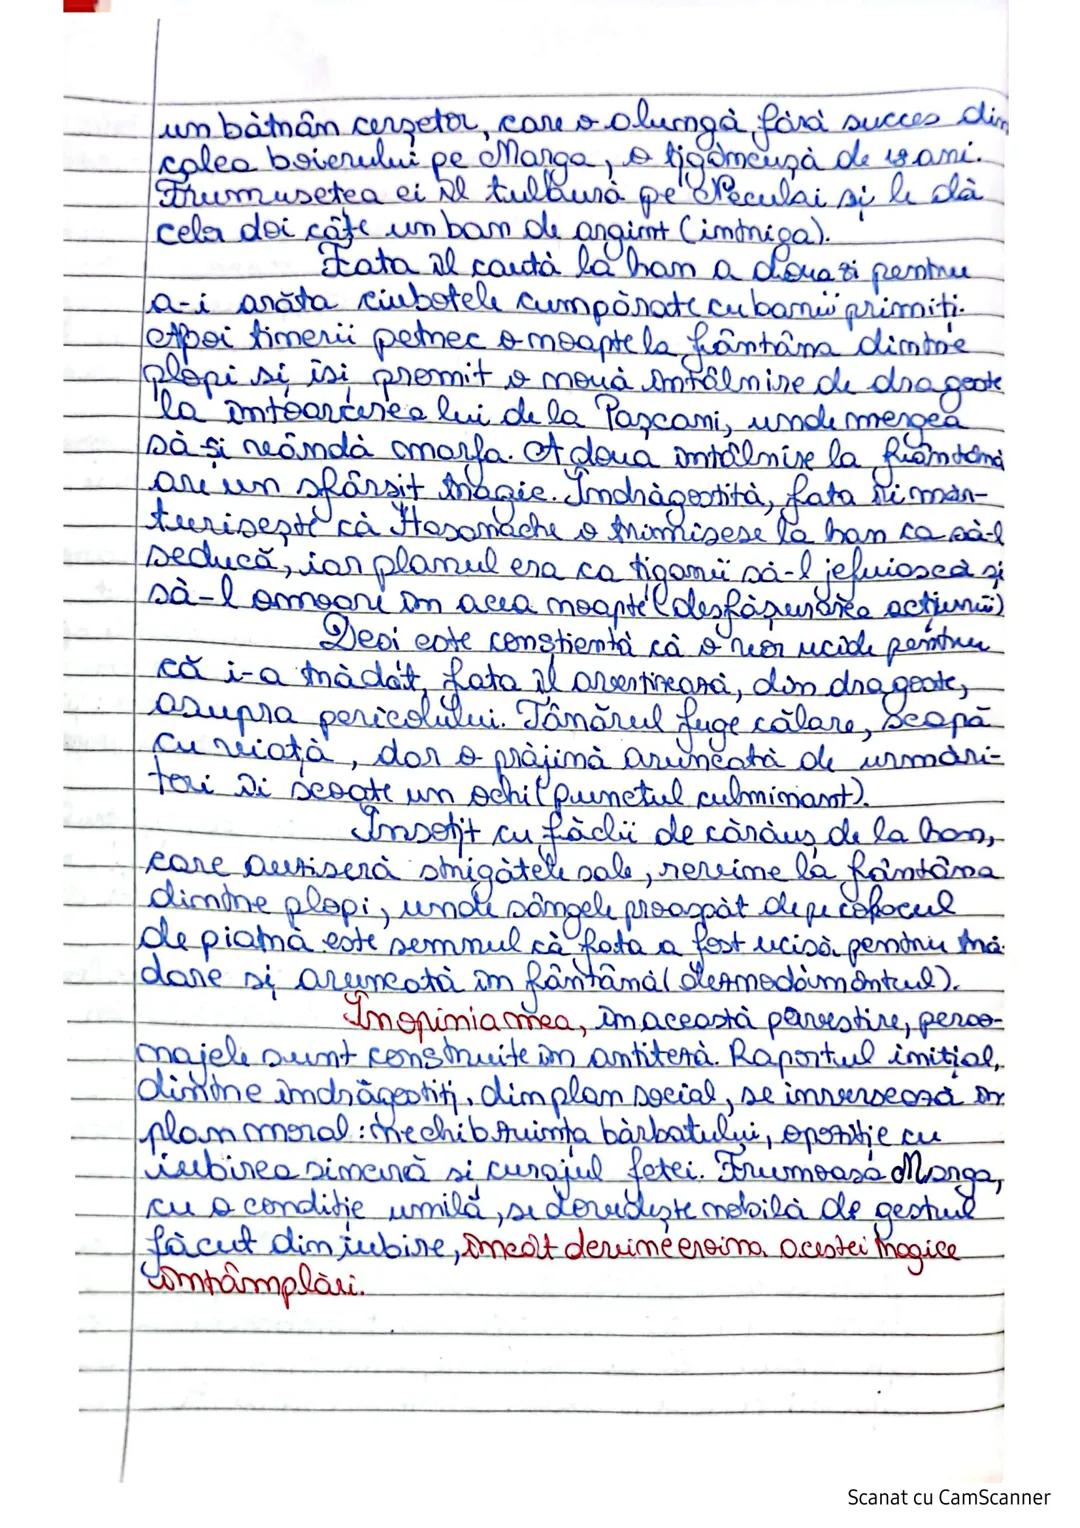 un bătrân cerșetor, care o alungă fără succes din
calea boierului pe Marga, o țigăncușă de 18 ani.
Frumusețea ei îl tulbură pe Neculai și le dă
celor doi câte un ban de argint (intriga).
Fata îl caută la han a doua zi pentru
a-i arăta ciubotele cumpărate cu banii primiți.
Apoi tinerii petrec o noapte la fântâna dintre
plopi și își promit o nouă întâlnire de dragoste
la întoarcerea lui de la Pașcani, unde mergea
să-și vândă marfa. A doua întâlnire la fântână
are un sfârșit tragic. Îndrăgostită, fata îi măr-
turisește că Hasanache o trimisese la han ca să-l
seducă, iar planul era ca țiganii să-l jefuiască și
să-l omoare în acea noapte (desfășurarea acțiunii)
Deși este conștientă că o vor ucide pentru
că i-a trădat, fata îl avertizează, din dragoste,
asupra pericolului. Tânărul fuge călare, scapă
cu viață, dar o prăjină aruncată de urmări-
tori îi scoate un ochi (punctul culminant).
Însoțit cu făclii de cărăuș de la han,
care auziseră strigătele sale, revine la fântâna
dintre plopi, unde sângele proaspăt de pe colacul
de piatră este semnul că fata a fost ucisă pentru tră-
dare și aruncată în fântână (deznodământul).
În opinia mea, în această povestire, perso-
najele sunt construite în antiteză. Raportul inițial,
dintre îndrăgostiți, din plan social, se inversează în
plan moral: nechibzuința bărbatului, opoziție cu
iubirea sinceră și curajul fetei. Frumoasa Marga,
cu o condiție umilă, se dovedește nobilă de gestul
făcut din iubire, încât devine eroina acestei tragice
întâmplări.
Scanat cu CamScanner